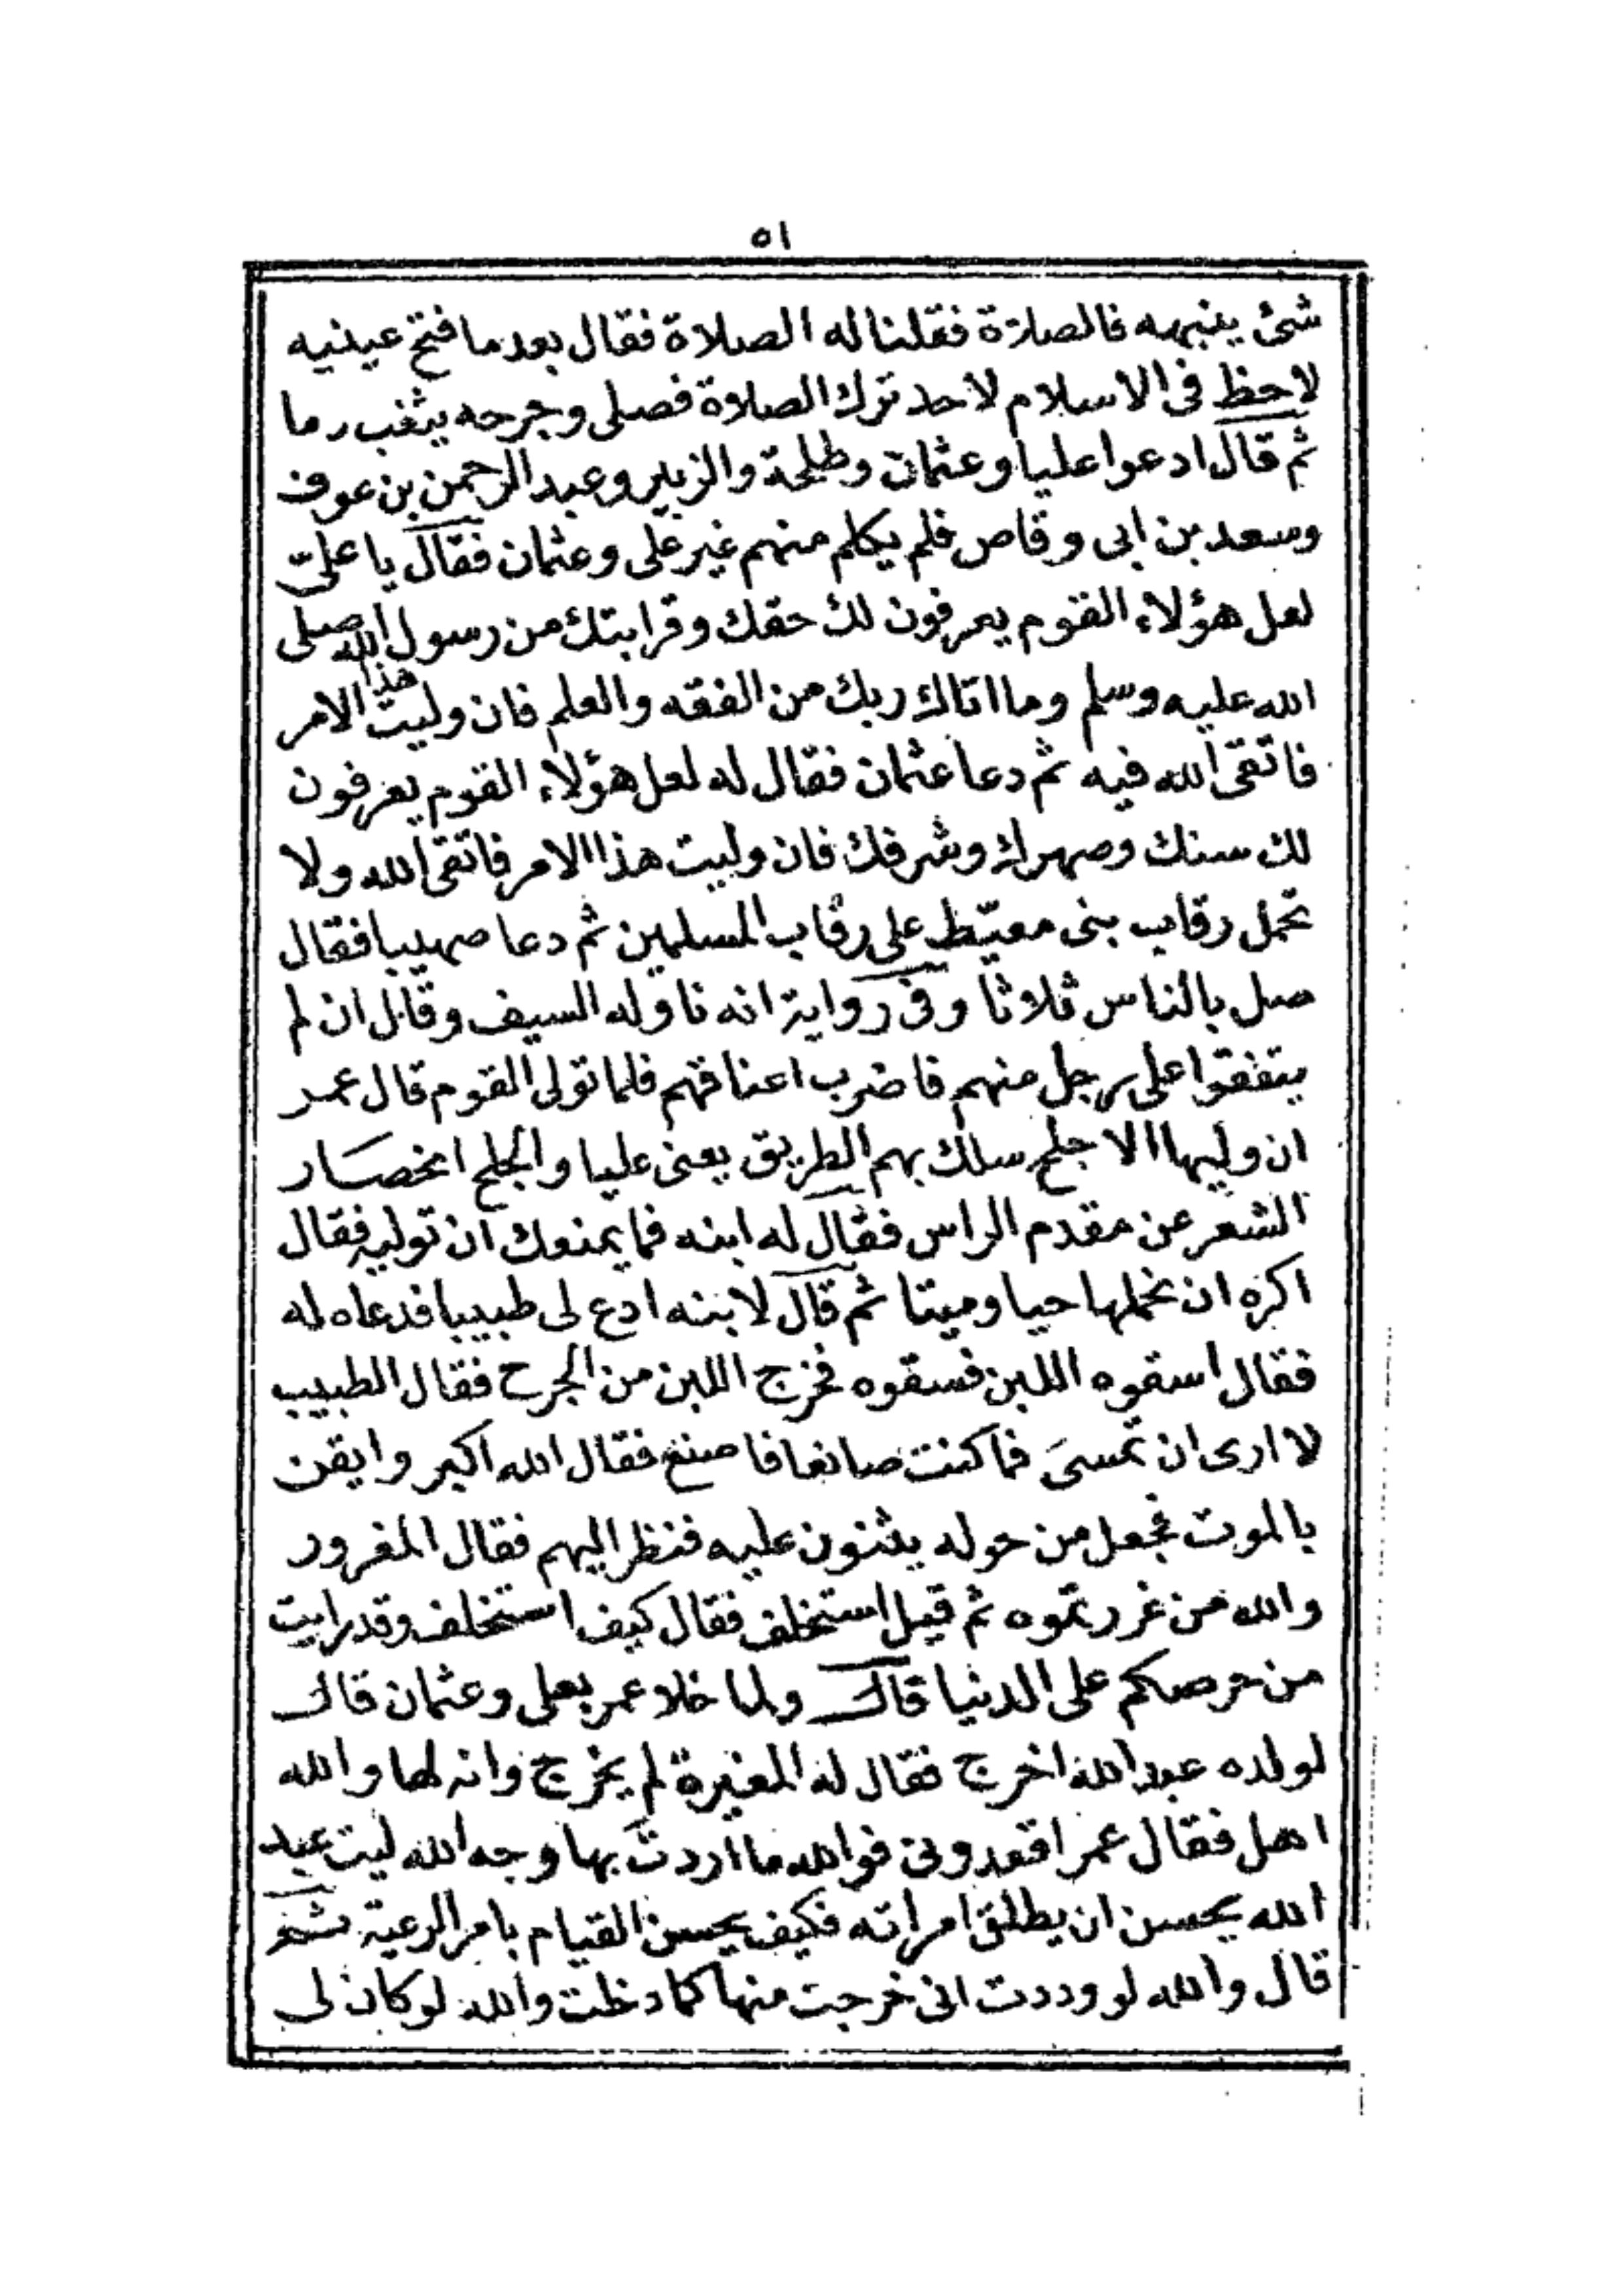 ٥١
شئ ينبهه فالصلاة فقلنا له الصلاة فقال بعد ما فتح عينيه
لاحظ فى الاسلام لاحد ترك الصلاة فصلى وجرحه يثغب دما
ثم قال ادعوا عليا وعثمان وطلحة والزبير وعبد الرحمن بن عوف
وسعد بن ابى وقاص فلم يكلم منهم غير على وعثمان فقال يا علىّ
لعل هؤلاء القوم يعرفون لك حقك وقرابتك من رسول الله صلى
الله عليه وسلم وما اتاك ربك من الفقه والعلم فان وليت هذا الامر
فاتقى الله فيه ثم دعا عثمان فقال له لعل هؤلاء القوم يعرفون
لك سنك وصهرك وشرفك فان وليت هذا الامر فاتقى الله ولا
تحمل رقاب بنى معيّط على رقاب المسلمين ثم دعا صهيبا فقال
صل بالناس ثلاثا وفى رواية انه ناوله السيف وقال ان لم
يتفقوا على رجل منهم فاضرب اعناقهم فلما تولى القوم قال عمر
ان وليها الاجلح سلك بهم الطريق يعنى عليا والجلح انحصار
الشعر عن مقدم الراس فقال له ابنه فما يمنعك ان توليه فقال
اكره ان نحملها حيا وميتا ثم قال لابنه ادع لى طبيبا فدعاه له
فقال اسقوه اللبن فسقوه فخرج اللبن من الجرح فقال الطبيب
لا ارى ان تمسىَ فما كنت صانعا فاصنع فقال الله اكبر وايقن
بالموت فجعل من حوله يثنون عليه فنظر اليهم فقال المغرور
والله من غررتموه ثم قيل استخلف فقال كيف استخلف وقد رايت
من حرصكم على الدنيا قال ولما خلا عمر بعلى وعثمان قال
لولده عبد الله اخرج فقال له المغيرة لم يخرج وانه لها والله
اهل فقال عمر اقعدونى فوالله ما اردتَ بها وجه الله ليت عبد
الله يحسن ان يطلق امراته فكيف يحسن القيام بامر الرعية ثم
قال والله لو وددت انى خرجت منها كما دخلت والله لو كان لى